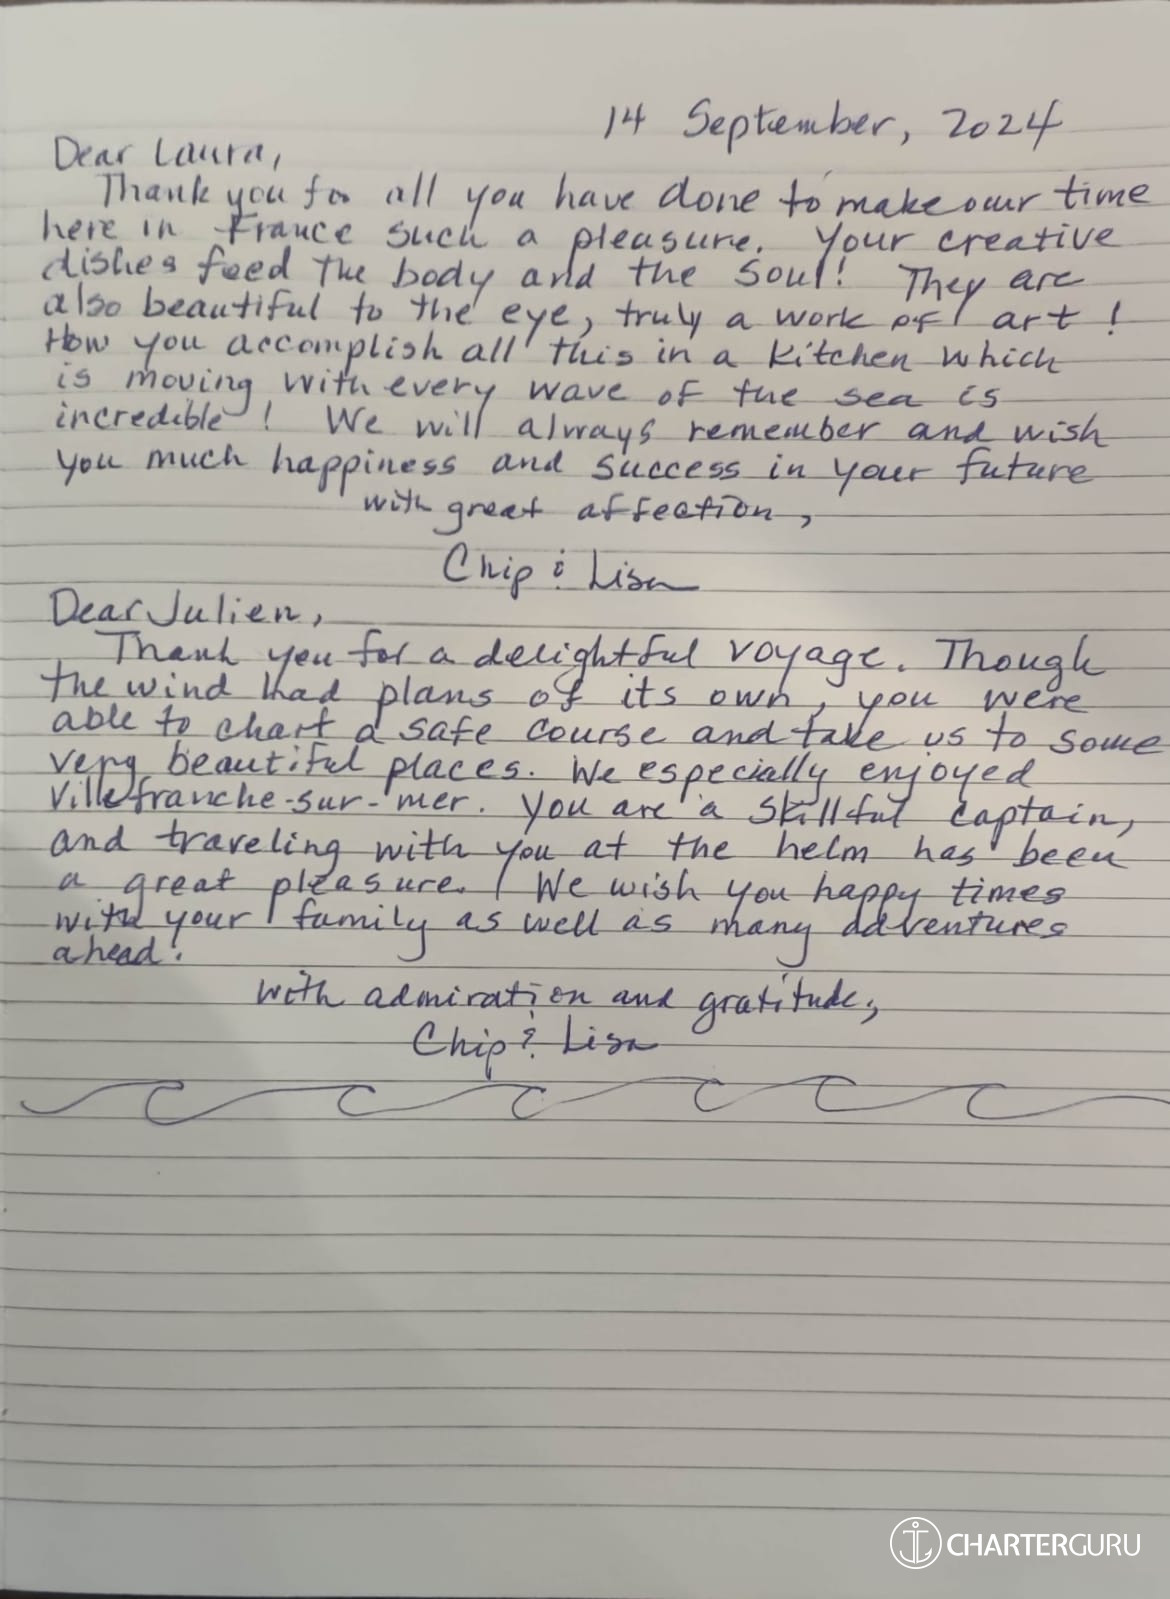 14 September, 2024
Dear Laura,
Thank you for all you have done to make our time
here in France such a pleasure. Your creative
dishes feed the body and the soul! They are
also beautiful to the eye, truly a work of art!
How you accomplish all this in a kitchen which
is moving with every wave of the sea is
incredible! We will always remember and wish
you much happiness and success in your future
with great affection,
Chip & Lisa
Dear Julien,
Thank you for a delightful voyage. Though
the wind had plans of its own, you were
able to chart a safe course and take us to some
very beautiful places. We especially enjoyed
Villefranche-sur-mer. You are a skillful captain,
and traveling with you at the helm has been
a great pleasure. We wish you happy times
with your family as well as many adventures
ahead!
with admiration and gratitude,
Chip & Lisa
CHARTERGURU